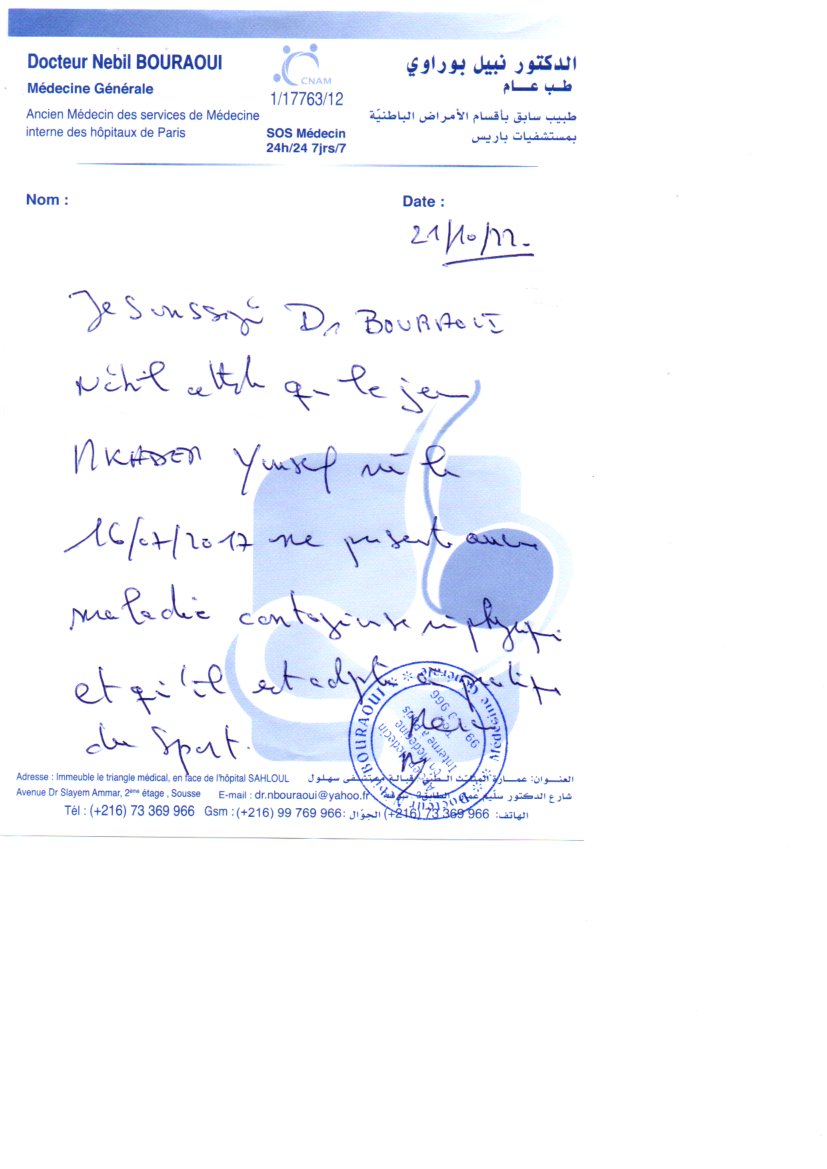 Docteur Nebil BOURAOUI
Médecine Générale
Ancien Médecin des services de Médecine
interne des hôpitaux de Paris
CNAM
1/17763/12
SOS Médecin
24h/24 7jrs/7
الدكتور نبيل بوراوي
طب عام
طبيب سابق بأقسام الأمراض الباطنيّة
بمستشفيات باريس
Nom :
Date :
21/10/22.
Je soussigné Dr BOURAOUI
Nébil atteste que le jeune
MKADEM Yousef né le
16/07/2017 ne présente aucune
maladie contagieuse ni physique
et qu'il est adpte à pratiquer
du sport.
Docteur Nebil BOURAOUI * Médecine Générale *
Adresse : Immeuble le triangle médical, en face de l'hôpital SAHLOUL
Avenue Dr Slayem Ammar, 2ème étage , Sousse E-mail : dr.nbouraoui@yahoo.fr
العنـــوان: عمـــارة المثلث الطبي قبالة مستشفى سهلول
شارع الدكتور سليم عمار، الطابق سوسة
Tél : (+216) 73 369 966 Gsm : (+216) 99 769 966 :الجوّال (+216) 73 369 966 :الهاتف